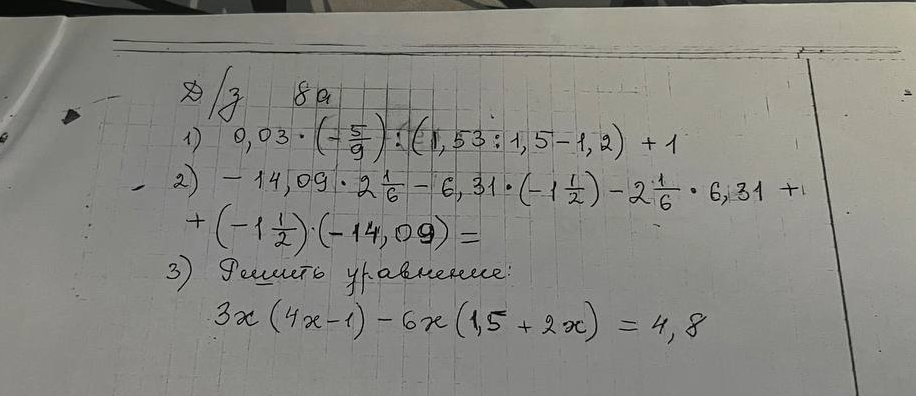 Д/з 8а
1) 0,03 · (-5/9) : (1,53 : 1,5 - 1,2) + 1
2) - 14,09 · 2 1/6 - 6,31 · (-1 1/2) - 2 1/6 · 6,31 +
+ (-1 1/2) · (-14,09) =
3) Решить уравнение:
3x (4x - 1) - 6x (1,5 + 2x) = 4,8